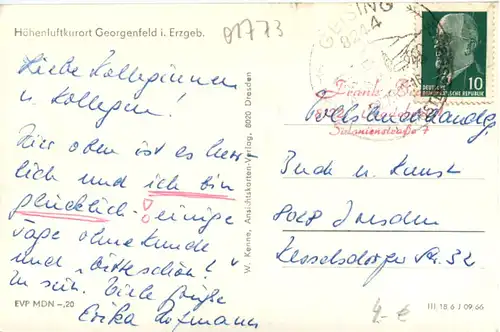 Höhenluftkurort Georgenfeld i. Erzgeb.
01773
Liebe Kolleginnen
u. Kollegen!
Hier oben ist es herr-
lich und ich bin
glücklich - einige
Tage ohne Kunde
und "bitteschön"!
zu sein. Viele Grüße
Erika Hofmann
EVP MDN -,20
W. Kenne, Ansichtskarten-Verlag, 8020 Dresden
GEISING
8244
DEUTSCHE DEMOKRATISCHE REPUBLIK 10
Frank
7
Volksbuchhandlg.
Buch u. Kunst
8028 Dresden
Kesselsdorfer Str. 32
III 18 6 J 09/66
4,- €